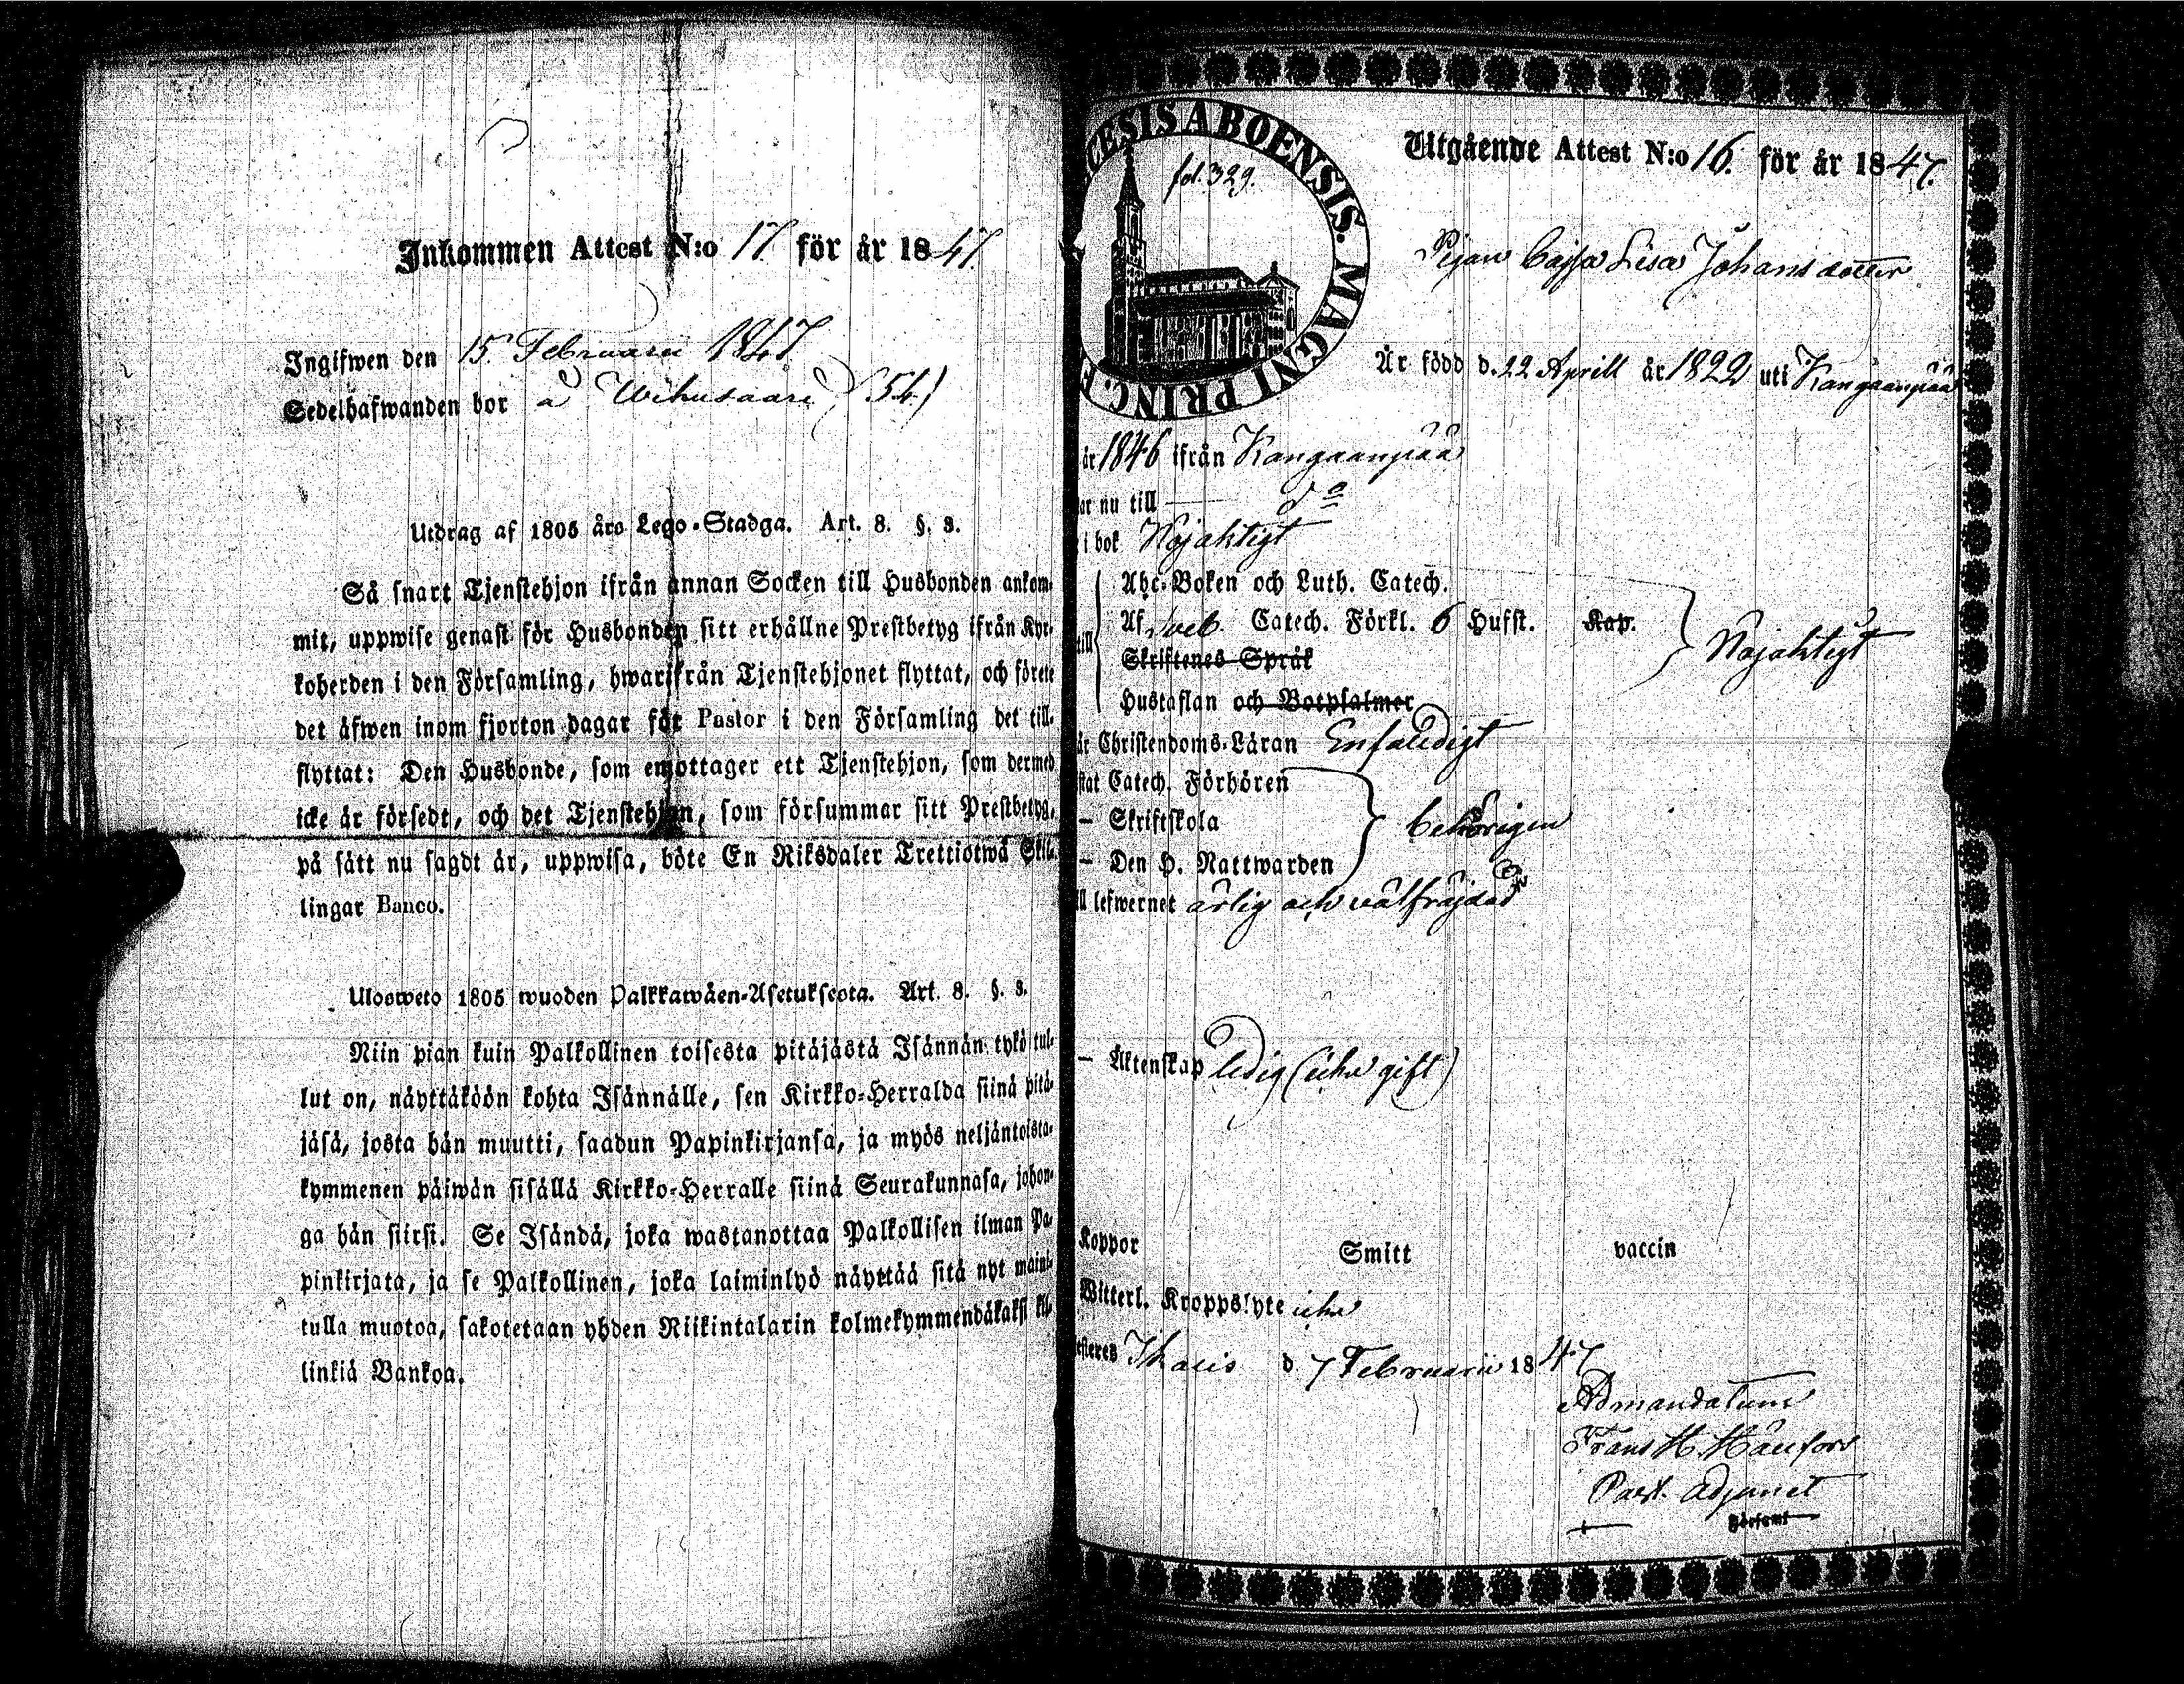 Inkommen Attest N:o 17 för år 1847.
Ingifwen den 15 Februarii 1847
Sedelhafwanden bor å Wihusaari (54)
Utdrag af 1805 års Lego-Stadga. Art. 8. §. 3.
Så snart Tjenstehjon ifrån annan Socken till Husbonden ankom-
mit, uppwise genast för Husbonden sitt erhållne Prestbetyg ifrån Kyr-
koherden i den Församling, hwarifrån Tjenstehjonet flyttat, och förete
det äfwen inom fjorton dagar för Pastor i den Församling det till-
flyttat: Den Husbonde, som emottager ett Tjenstehjon, som dermed
icke är försedt, och det Tjenstehjon, som försummar sitt Prestbetyg,
på sätt nu sagdt är, uppwisa, böte En Riksdaler Trettiotwå Skil-
lingar Banco.
Ulosweto 1805 wuoden Palkkawäen-Asetuksesta. Art. 8. §. 3.
Niin pian kuin Palkollinen toisesta pitäjästä Isännän tykö tul-
lut on, näyttäköön kohta Isännälle, sen Kirkko-Herralda siinä pitä-
jäsä, josta hän muutti, saadun Papinkirjansa, ja myös neljäntoista-
kymmenen päiwän sisällä Kirkko-Herralle siinä Seurakunnasa, johon-
ga hän siirsi. Se Isändä, joka wastanottaa Palkollisen ilman Pa-
pinkirjata, ja se Palkollinen, joka laiminlyö näyttää sitä nyt maini-
tulla muotoa, sakotetaan yhden Riikintalarin kolmekymmendäkaksi kil-
linkiä Bankoa.
CESIS ABOENSIS. MAGNI PRINC. F
fol. 329.
Utgående Attest N:o 16. för år 1847.
Pigan Cajsa Lisa Johansdotter
Är född d. 22 Aprill år 1822 uti Kangaanpää
år 1846 ifrån Kangaanpää
ar nu till — do
i bok Nöjaktigt
Abc-Boken och Luth. Catech.
till Af Sveb. Catech. Förkl. 6 Hufst. Kap. Nöjaktigt
Skriftenes Språk
Hustaflan och Botpsalmer
är Christendoms-Läran Enfaldigt
stat Catech. Förhören
— Skriftskola behörigen
— Den H. Nattwarden
ll lefwernet ärlig och välfräjdad
— Äktenskap ledig (icke gift)
Koppor Smitt vaccin
Witterl. Kroppslyte icke
esteres Ikalis d. 7 Februarii 1847
Ad mandatum
Frans H. Hänfors
Past. Adjunct
Församl